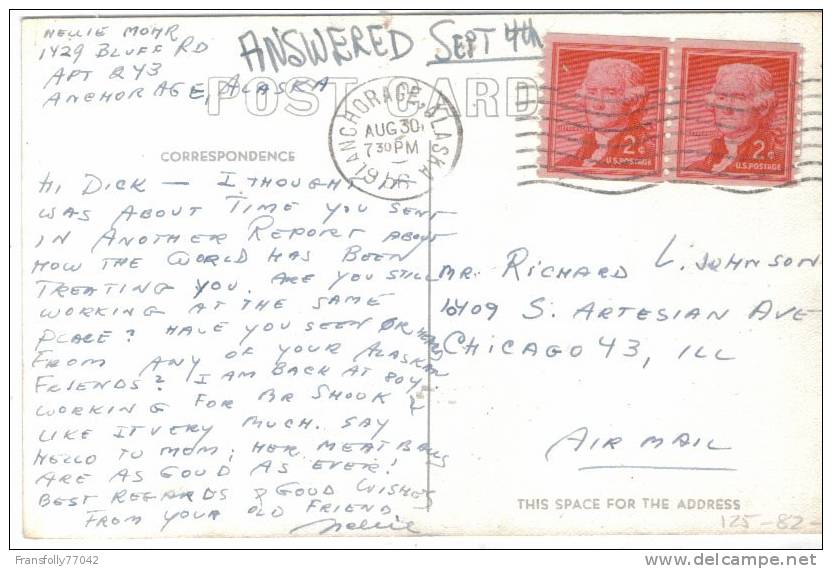 NELLIE MOHR
1429 BLUFF RD
APT 243
ANCHORAGE, ALASKA
ANSWERED SEPT 4th
POST CARD
ANCHORAGE, ALASKA
AUG 30
730 PM
2¢
U.S. POSTAGE
2¢
U.S. POSTAGE
CORRESPONDENCE
HI DICK — I THOUGHT IT
WAS ABOUT TIME YOU SENT
IN ANOTHER REPORT ABOUT
HOW THE WORLD HAS BEEN
TREATING YOU. ARE YOU STILL
WORKING AT THE SAME
PLACE? HAVE YOU SEEN OR HEARD
FROM ANY OF YOUR ALASKAN
FRIENDS? I AM BACK AT 804,
WORKING FOR BR SHOOK &
LIKE IT VERY MUCH. SAY
HELLO TO MOM; HER MEAT BALLS
ARE AS GOOD AS EVER!
BEST REGARDS & GOOD WISHES
FROM YOUR OLD FRIEND
Nellie
MR. RICHARD L. JOHNSON
6409 S. ARTESIAN AVE
CHICAGO 43, ILL
AIR MAIL
THIS SPACE FOR THE ADDRESS
125-82-
Fransfolly77042
www.delcampe.net